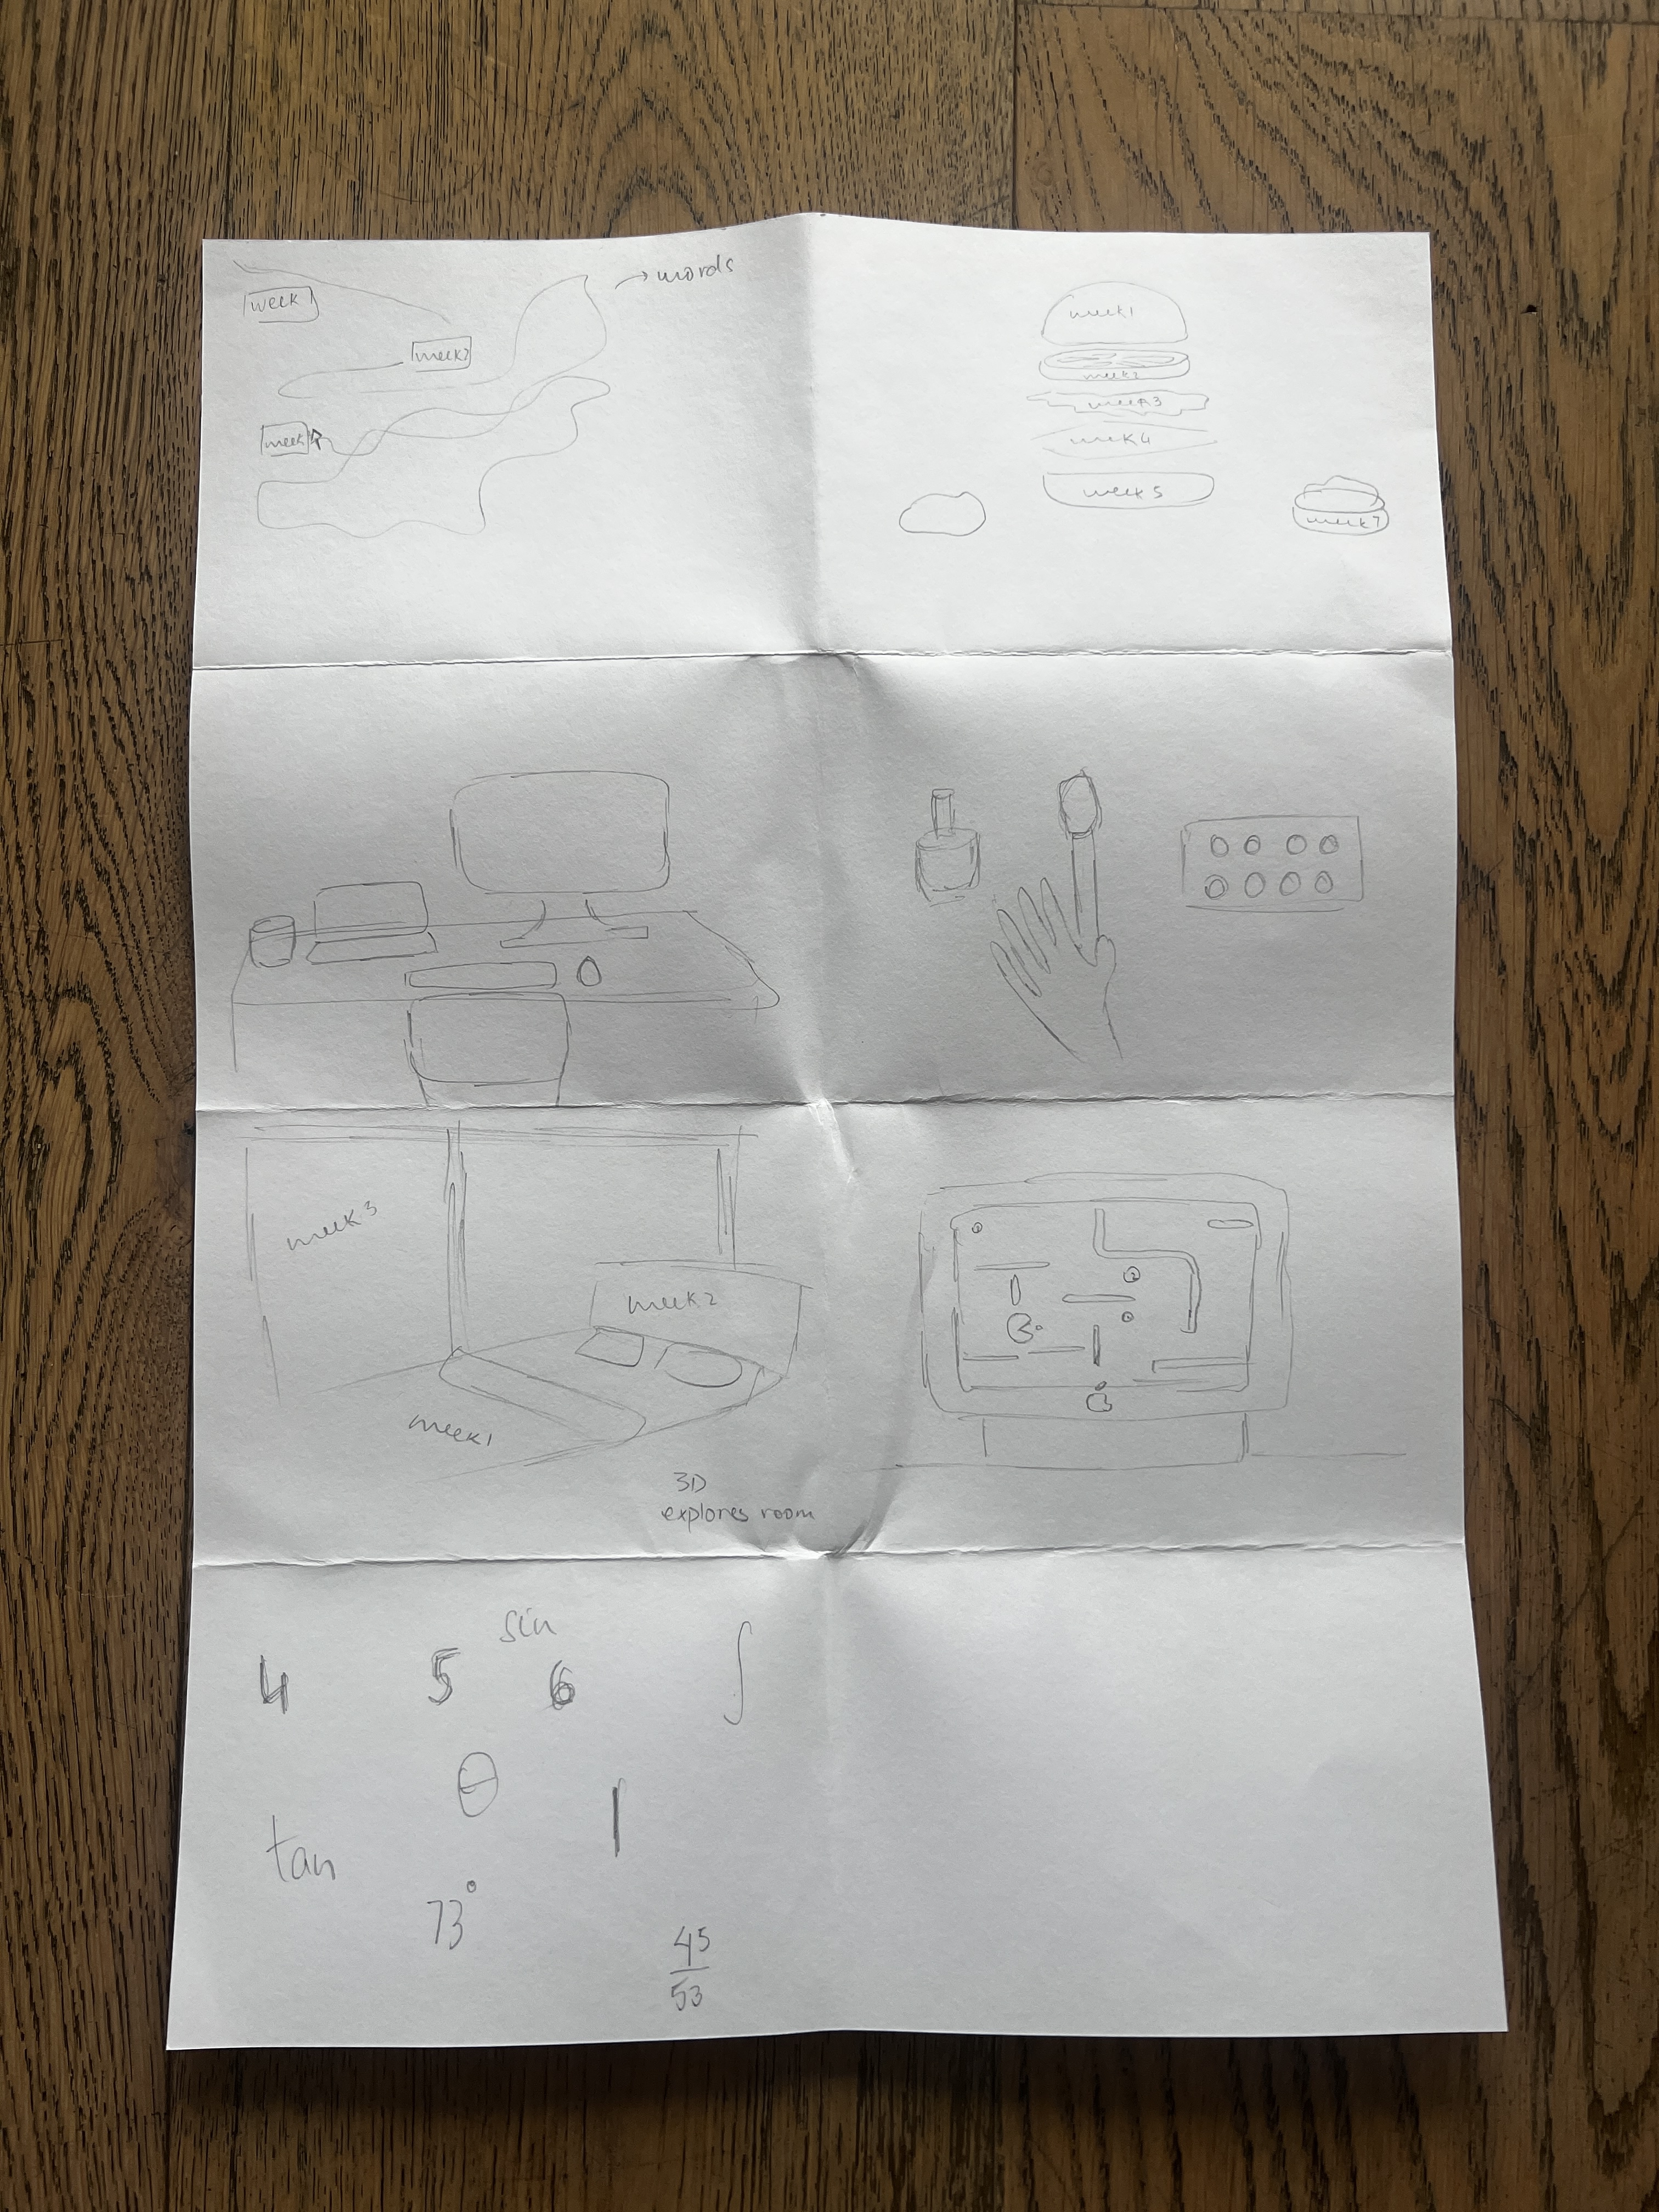 week1
week2
week
→ words
week1
week2
week3
week4
week5
week7
week3
week2
week1
3D
explores room
sin
4 5 6 ∫
θ
1
tan
73°
45
53